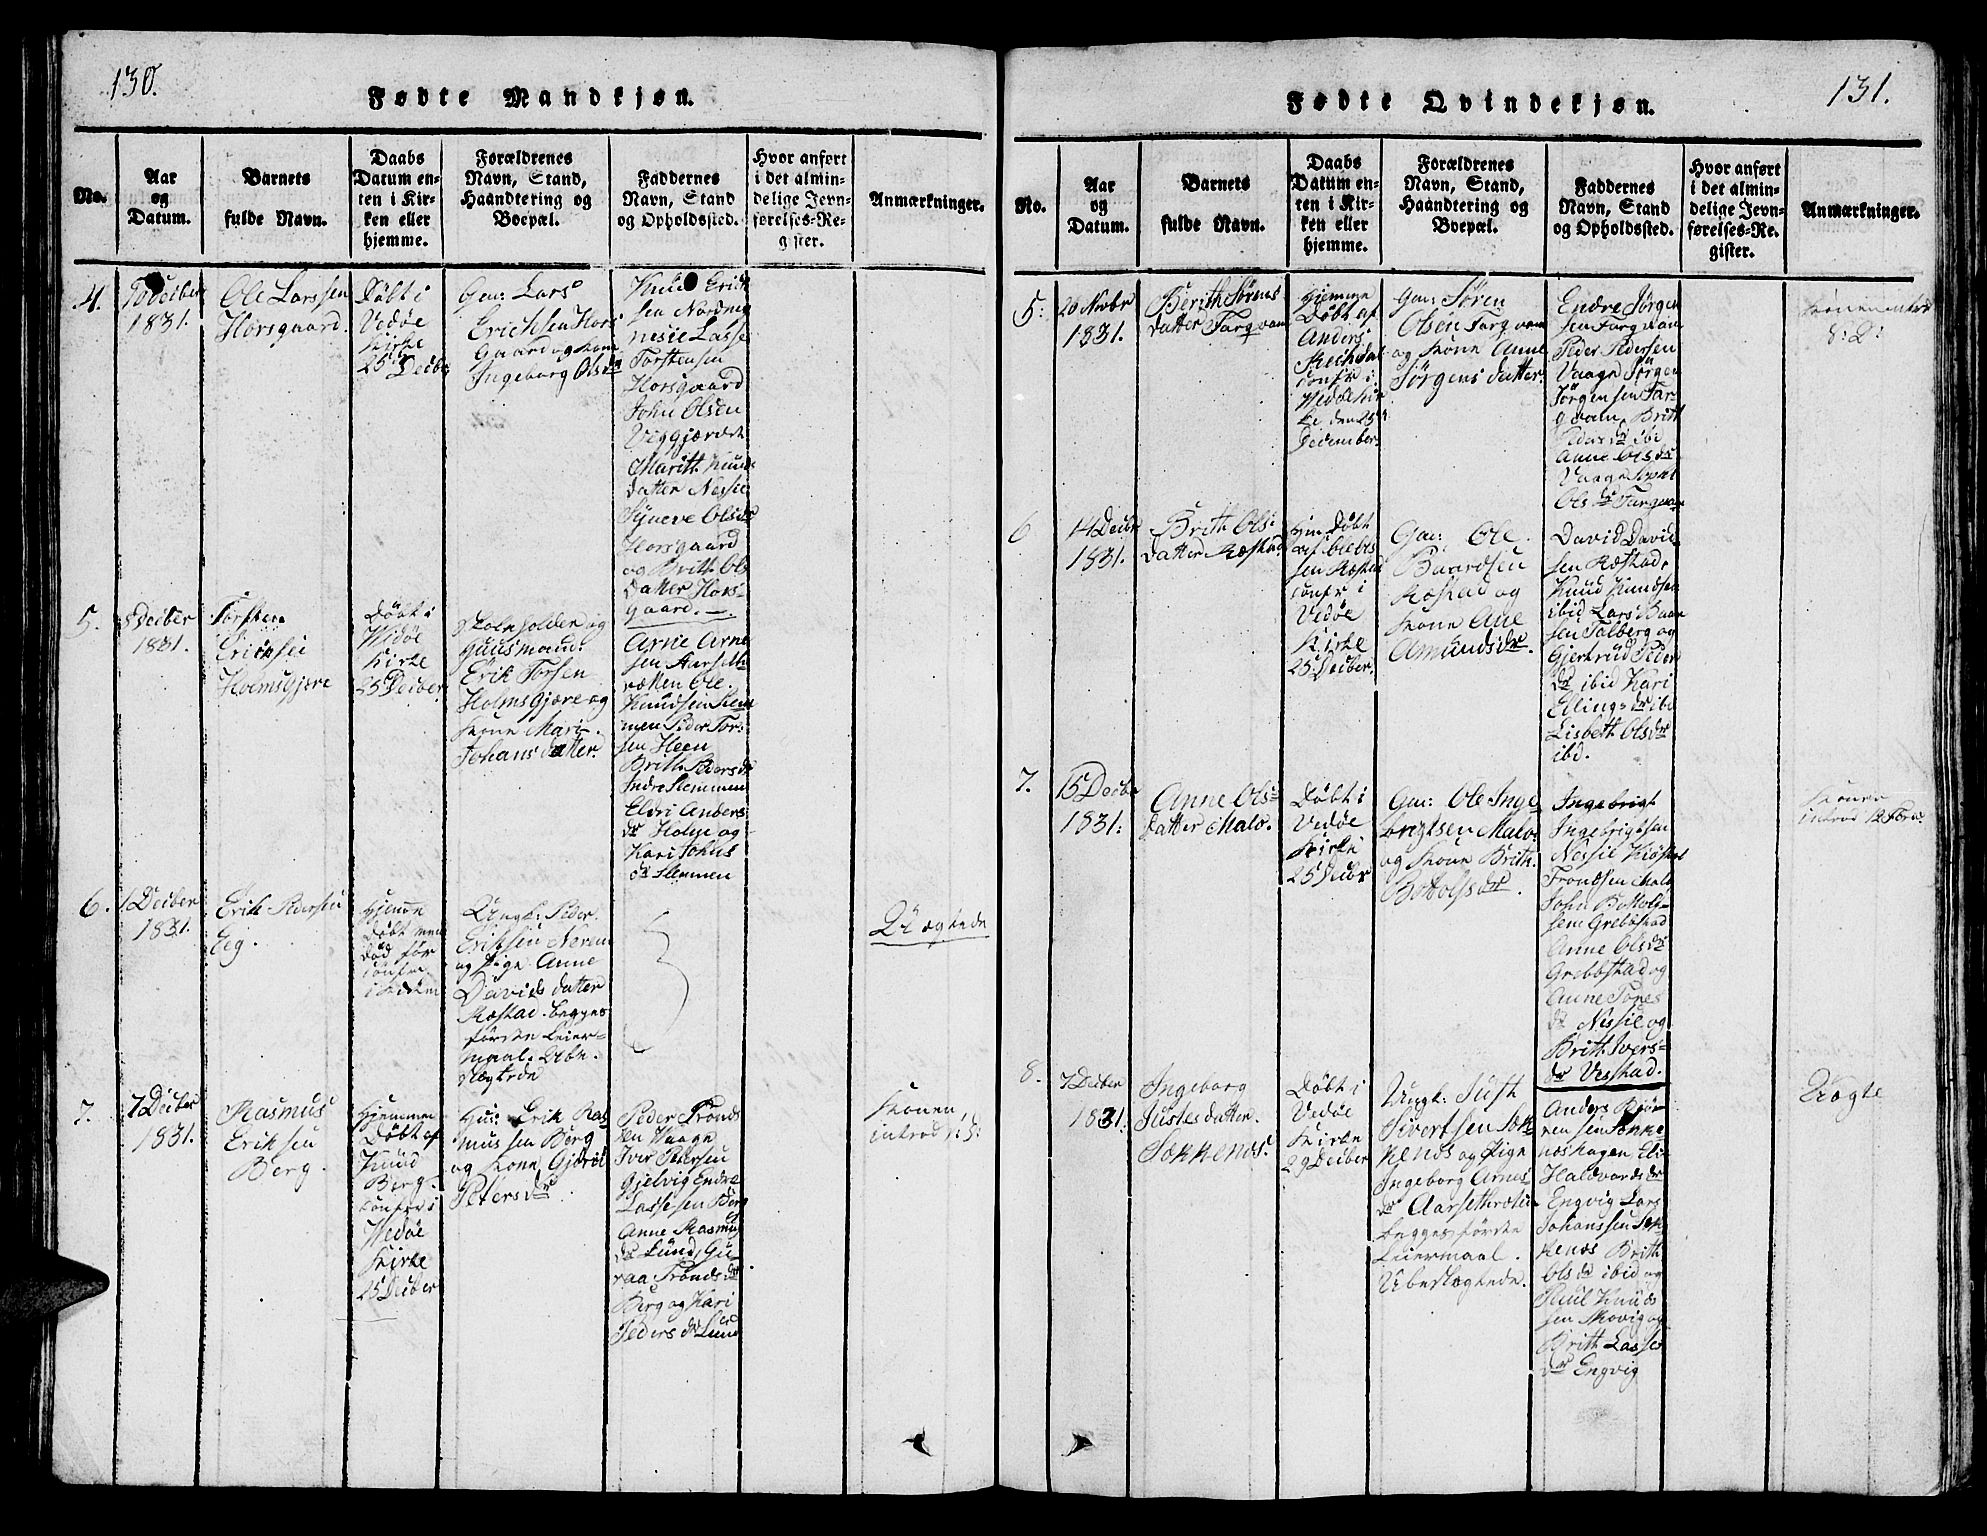 130.
Fødte Mandkjøn.
No.
Aar
og
Datum.
Barnets
fulde Navn.
Daabs
Datum en-
ten i Kir-
ken eller
hjemme.
Forældrenes
Navn, Stand,
Haandtering og
Boepæl.
Faddernes
Navn, Stand
og Opholdssted.
Hvor anført
i det almin-
delige Jevn-
førelses-Re-
gister.
Anmærkninger.
4.
10 Deiber
1831.
Ole Larssen
Horsgaard.
Døbt i
Vedøe
Kirke
25 Deibr
Gm: Lars
Erichsen Hors
Gaard og Kone
Ingeborg Olsdr
Knud Erich
sen Nordne
nesie Lasse
Torstensen
Horsgaard
John Olsen
Marith Knuds
datter Nessie
Syneve Olsdr
Horsgaard
og Brith Ols
datter Hors-
gaard. —
5.
8 Deiber
1831.
Torsten
Ericksen
Holmsgjære
Døbt i
Widøe
Kirke
25 Deiber
Skoleholder og
Huusmand:
Erik Torsen
Holmsgjære og
Kone Mari-
Johans datter.
Arne Arne
sen Aarseth
røtten Ole.
Knudsen Slem
men Peder Tor-
sen Heen
Brith Pedersdr
Indre Slemmen
Eldri Anders
dr Holm og
Kari Johns
dr Slemmen
6.
1 Deiber
1831.
Erik Pedersen
Eeg.
Hjemme
Døbt men
død før
Confir.
i Kirken
Ungk: Peder.
Eriksen Neren
og Pige Anne
Davids datter
Ræstad. begges
første Leier-
maal. Ube-
slægtede
Uægtede
7.
7 Deiber
1831.
Rasmus
Eriksen
Berg.
Hjemme
Døbt af
Knud
Berg.
Confr i
Wedøe
Kirke
25 Deiber
Hus: Erik Ras
mussen Berg
og Kone Gjøroi
Petersdr
Peder Tronds
sen Vaage
Iver Petersen
Gjelvig Endre
Lassesen Berg
Anne Rasmus
dr Lund, Gu
raa Tronds dr
Berg og Kari
Peders dr Lund
Konen
introd
131.
Fødte Qvindekjøn.
No.
Aar
og
Datum.
Barnets
fulde Navn.
Daabs
Datum en-
ten i Kir-
ken eller
hjemme.
Forældrenes
Navn, Stand,
Haandtering og
Boepæl.
Faddernes
Navn, Stand
og Opholdssted.
Hvor anført
i det almin-
delige Jevn-
førelses-Re-
gister.
Anmærkninger.
5.
20 Novbr
1831.
Berith Sørens
datter Targvam
Hjemme
Døbt af
Anders
Confr i
Wedøe Kir
ke den 25de
December.
Gm: Søren
Olsen Targvam
og Kone Anne
Jørgens datter.
Endre Jørgen
sen Targvam
Peder Pedersen
Vaage Jørgen
Jørgensen Tar-
gvam Brith
Peders dr ibd
Anne Olsdr
Vaage
Ols dr Targvam
Konen introd
8: D:
6
14 Deibr
1831.
Brith Ols:
datter Ræstad
Hjm: Døbt
af Ole Ols
sen Ræstad
Confr i
Vedøe
Kirke
25 Deiber
Gm: Ole.
Baardsen
Ræstad og
Kone Ane
Amundsdr
David David
sen Ræstad,
Knud Knudsen
ibid Lars Baar
sen Talberg og
Gjertrud Peder
dr ibid Kari
Ellings dr ibd
Lisbeth Olsdr
ibd.
7.
15 Decbr
1831:
Anne Ols-
datter Malo.
Døbt i
Vedøe
Kirke
25 Deibr
Gm: Ole Inge
brigtsen Malo.
og Kone Brith.
Bottolfsdr.
Ingebrigt
Ingebrigtsen
Nessie
Trondsen Malo
John Bottolf-
sen Grebstad
Anne Olsdr
Grebstad og
Anne Tores
dr Nessie og
Brith Ivers-
dr Vesstad.
Konen
introd
8.
7 Deiber
1831:
Ingeborg
Justesdatter.
Sekkenes.
Døbt i
Vedøe
Kirke
29 Deiber
Ungk: Just
Sivertsen Sek
kenes og Pige
Ingeborg Arnes
dr Aarsethrøten
begges første
Leiermaal.
Ubeslægtede.
Anders Bjør
nsen Sekke
neshagen Eli
Haldvords dr
Engvig Lars
Johanssen Sek-
kenes Brith
Ols dr ibid og
Paul Knuds
sen Skovig og
Brith Lasses
dr Engvig
Uægte